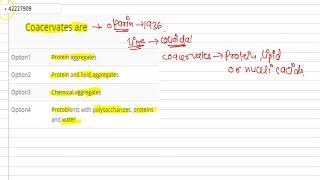 42227909
Coacervates are → oparin → 1936.
live → colloidal
Option1 Protein aggregates
coacervates → Protein, lipid
or nucleic acids
Option2 Protein and lipid aggregates
Option3 Chemical aggregates
Option4 Protobionts with polysaccharides, proteins
and water